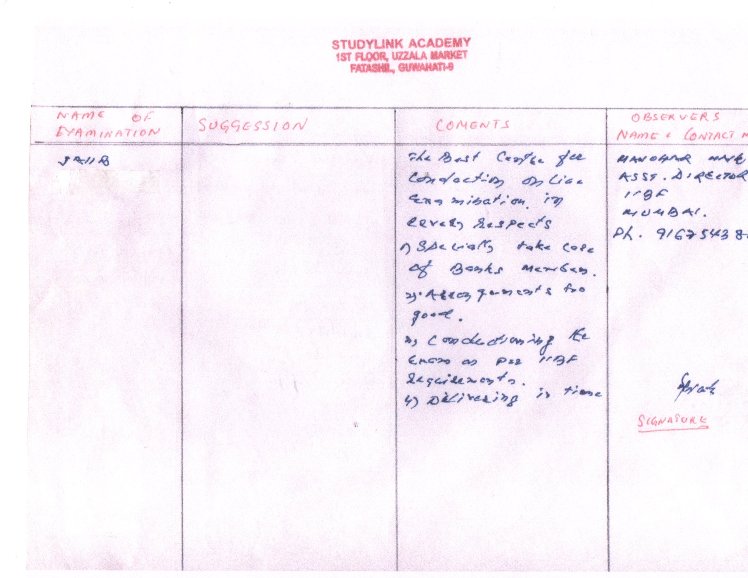 STUDYLINK ACADEMY
1ST FLOOR, UZZALA MARKET
FATASHIL, GUWAHATI-9
NAME OF
EXAMINATION
SUGGESSION
COMENTS
OBSERVERS
NAME & CONTACT N
JAIIB
The Best Centre for
Conduction on Line
Examination. in
every respects
1) Specially take care
of Banks members.
2) Arrangements too
good.
3) Conductioning the
Exam as per IIBF
Requirements.
4) Delivering in time
MANOHAR
ASST. DIRECTOR
IIBF
MUMBAI.
Ph. 91675438
SIGNATURE